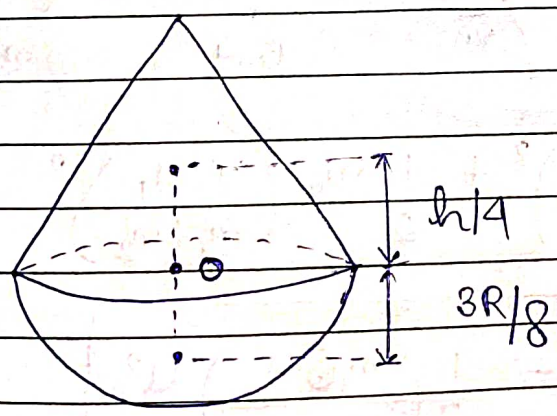 h/4
O
3R/8